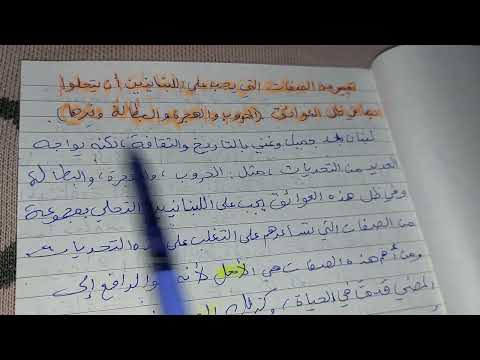 تعبير عن الصفات التي يجب على اللبنانيين أن يتحلوا
في ظل العوائق (الحروب والهجرة والبطالة وغيرها)
لبنان بلد جميل وغني بالتاريخ والثقافة، لكنه يواجه
العديد من التحديات، مثل: الحروب، والهجرة، والبطالة
وفي ظل هذه العوائق يجب على اللبنانيين التحلي بمجموعة
من الصفات التي تساعدهم على التغلب على هذه التحديات
ومن أهم هذه الصفات هي الأمل لأنه هو الدافع إلى
المضي قدمًا في الحياة، وكذلك